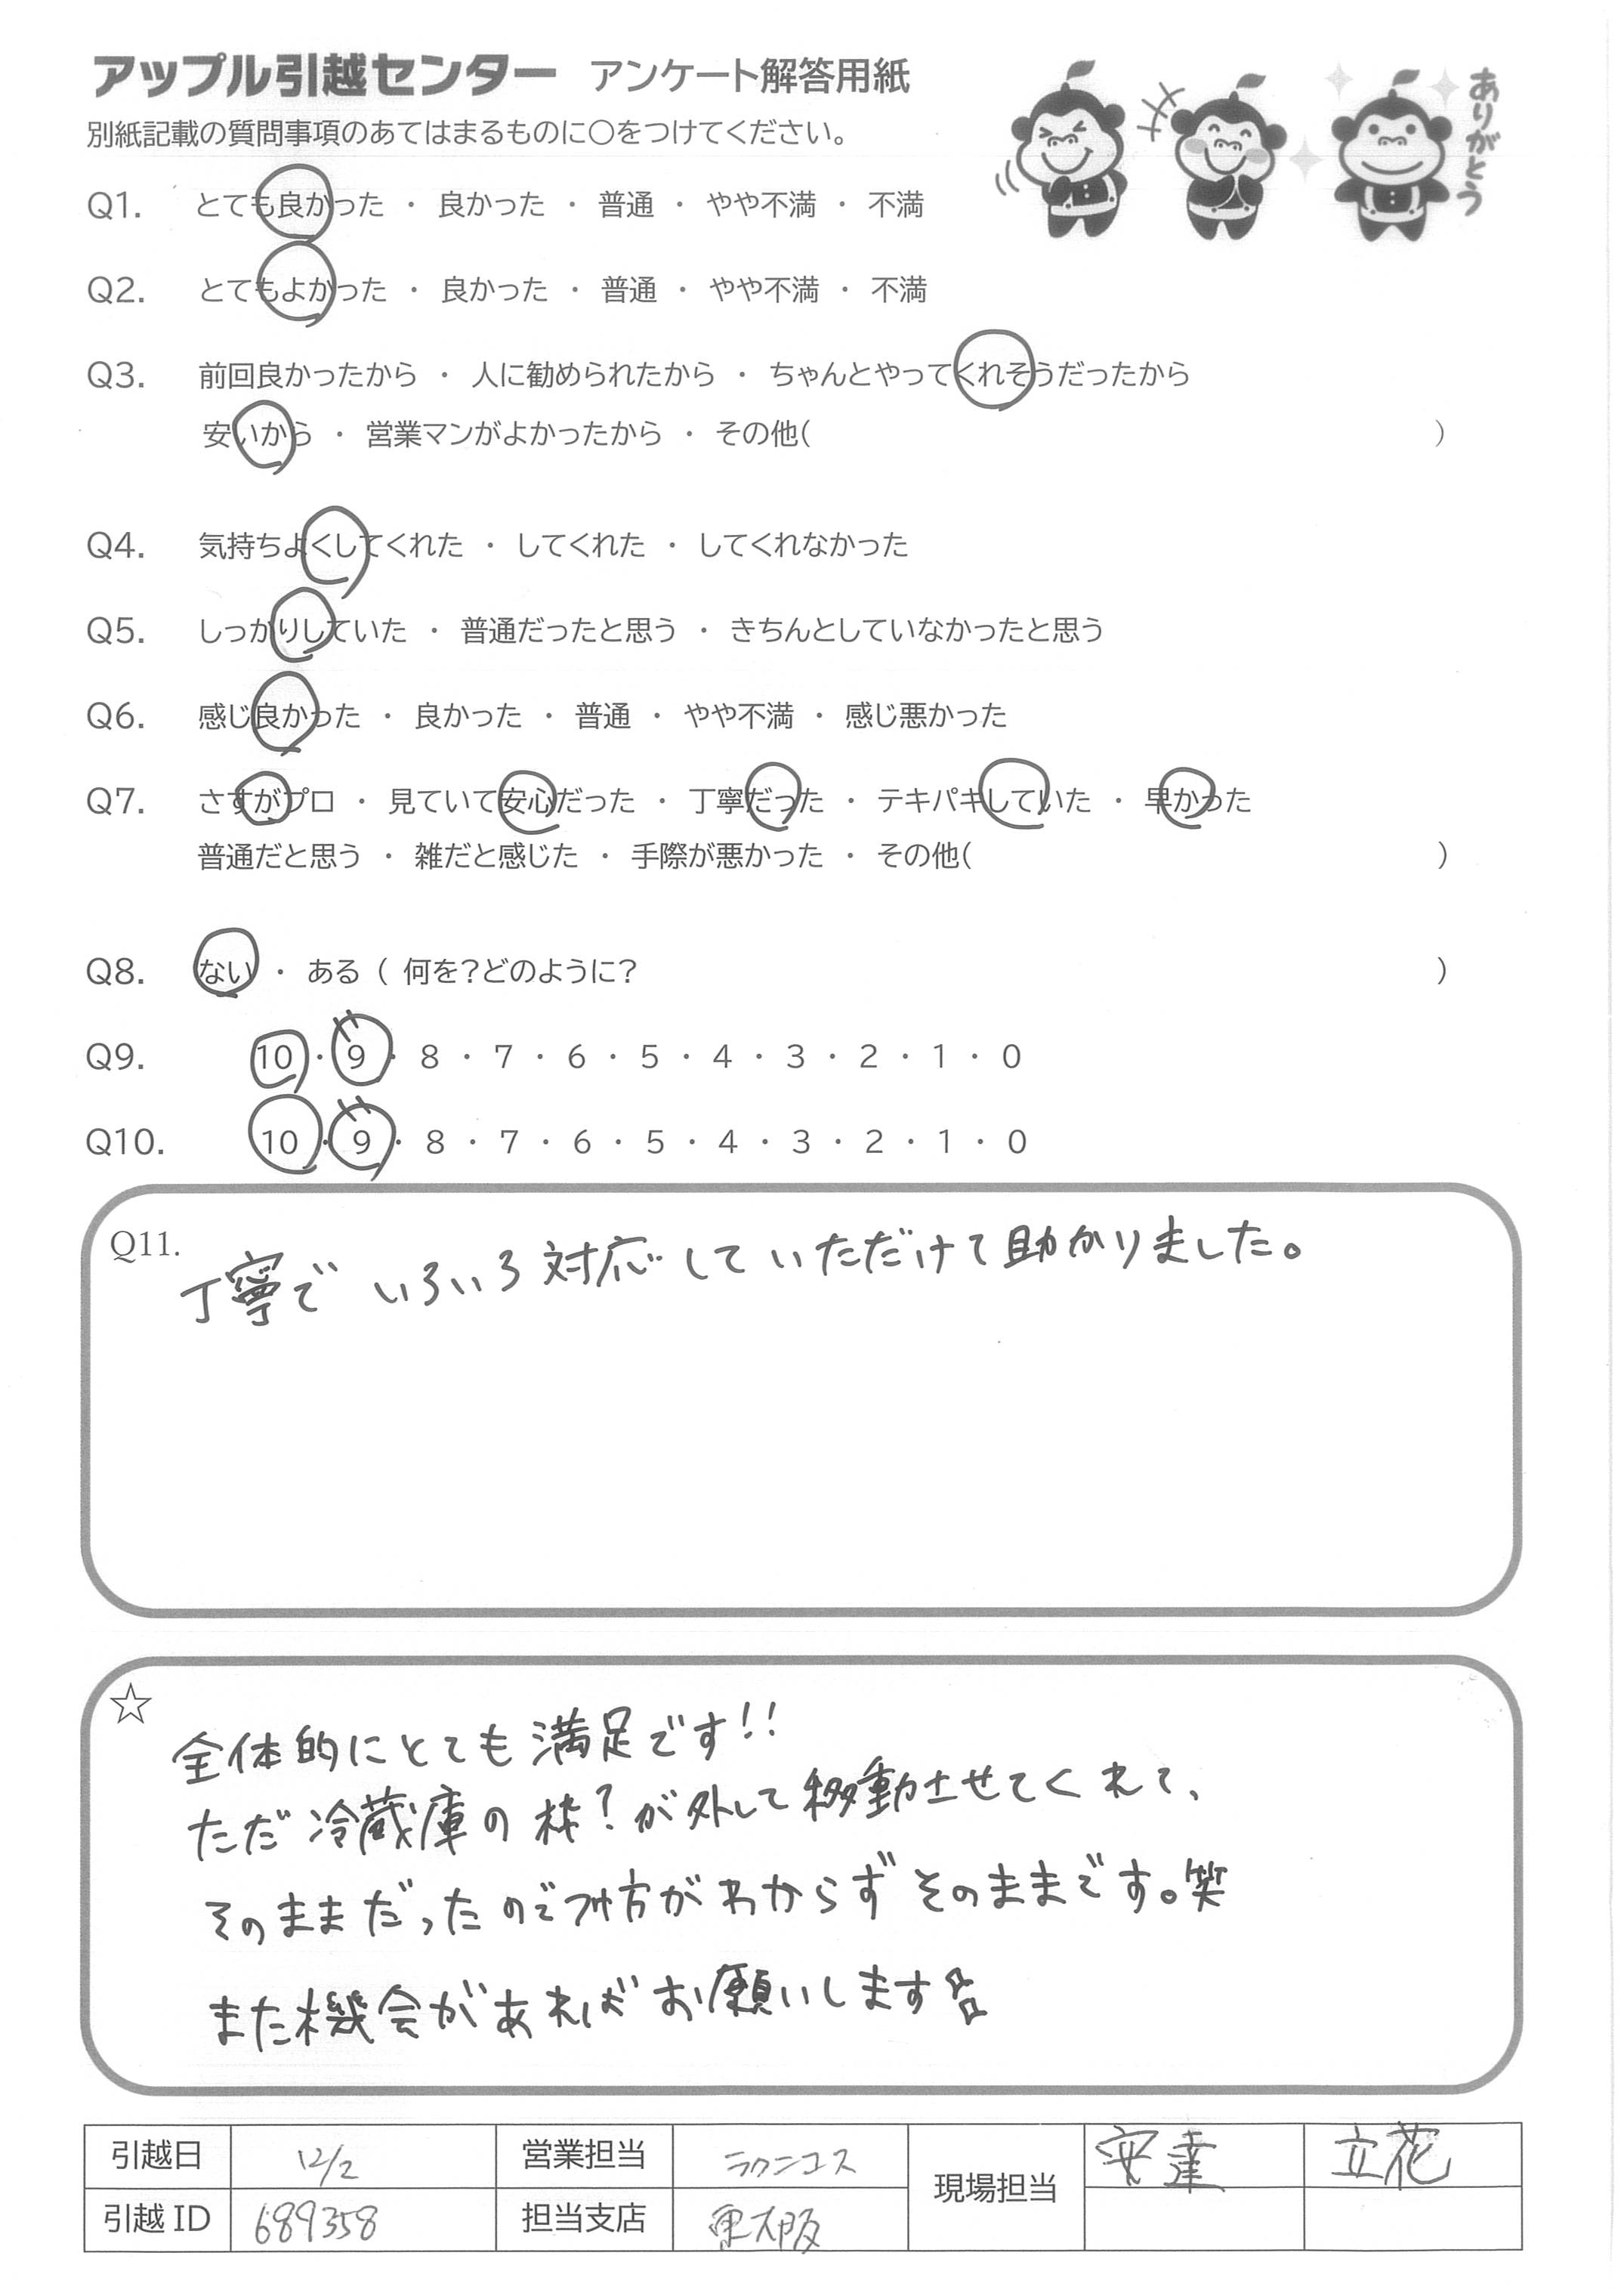 アップル引越センター アンケート解答用紙
ありがとう
別紙記載の質問事項のあてはまるものに〇をつけてください。
Q1. とても良かった ・ 良かった ・ 普通 ・ やや不満 ・ 不満
Q2. とてもよかった ・ 良かった ・ 普通 ・ やや不満 ・ 不満
Q3. 前回良かったから ・ 人に勧められたから ・ ちゃんとやってくれそうだったから
安いから ・ 営業マンがよかったから ・ その他( )
Q4. 気持ちよくしてくれた ・ してくれた ・ してくれなかった
Q5. しっかりしていた ・ 普通だったと思う ・ きちんとしていなかったと思う
Q6. 感じ良かった ・ 良かった ・ 普通 ・ やや不満 ・ 感じ悪かった
Q7. さすがプロ ・ 見ていて安心だった ・ 丁寧だった ・ テキパキしていた ・ 早かった
普通だと思う ・ 雑だと感じた ・ 手際が悪かった ・ その他( )
Q8. ない ・ ある ( 何を?どのように? )
Q9. 10 ・ 9 ・ 8 ・ 7 ・ 6 ・ 5 ・ 4 ・ 3 ・ 2 ・ 1 ・ 0
Q10. 10 ・ 9 ・ 8 ・ 7 ・ 6 ・ 5 ・ 4 ・ 3 ・ 2 ・ 1 ・ 0
Q11. 丁寧で いろいろ対応していただけて助かりました。
☆ 全体的にとても満足です!!
ただ冷蔵庫の枠?が外して移動させてくれて、
そのままだったので付方がわからずそのままです。笑
また機会があればお願いします☆
引越日 12/2 営業担当 ラクニコス 現場担当 安達 立花
引越 ID 689358 担当支店 東大阪